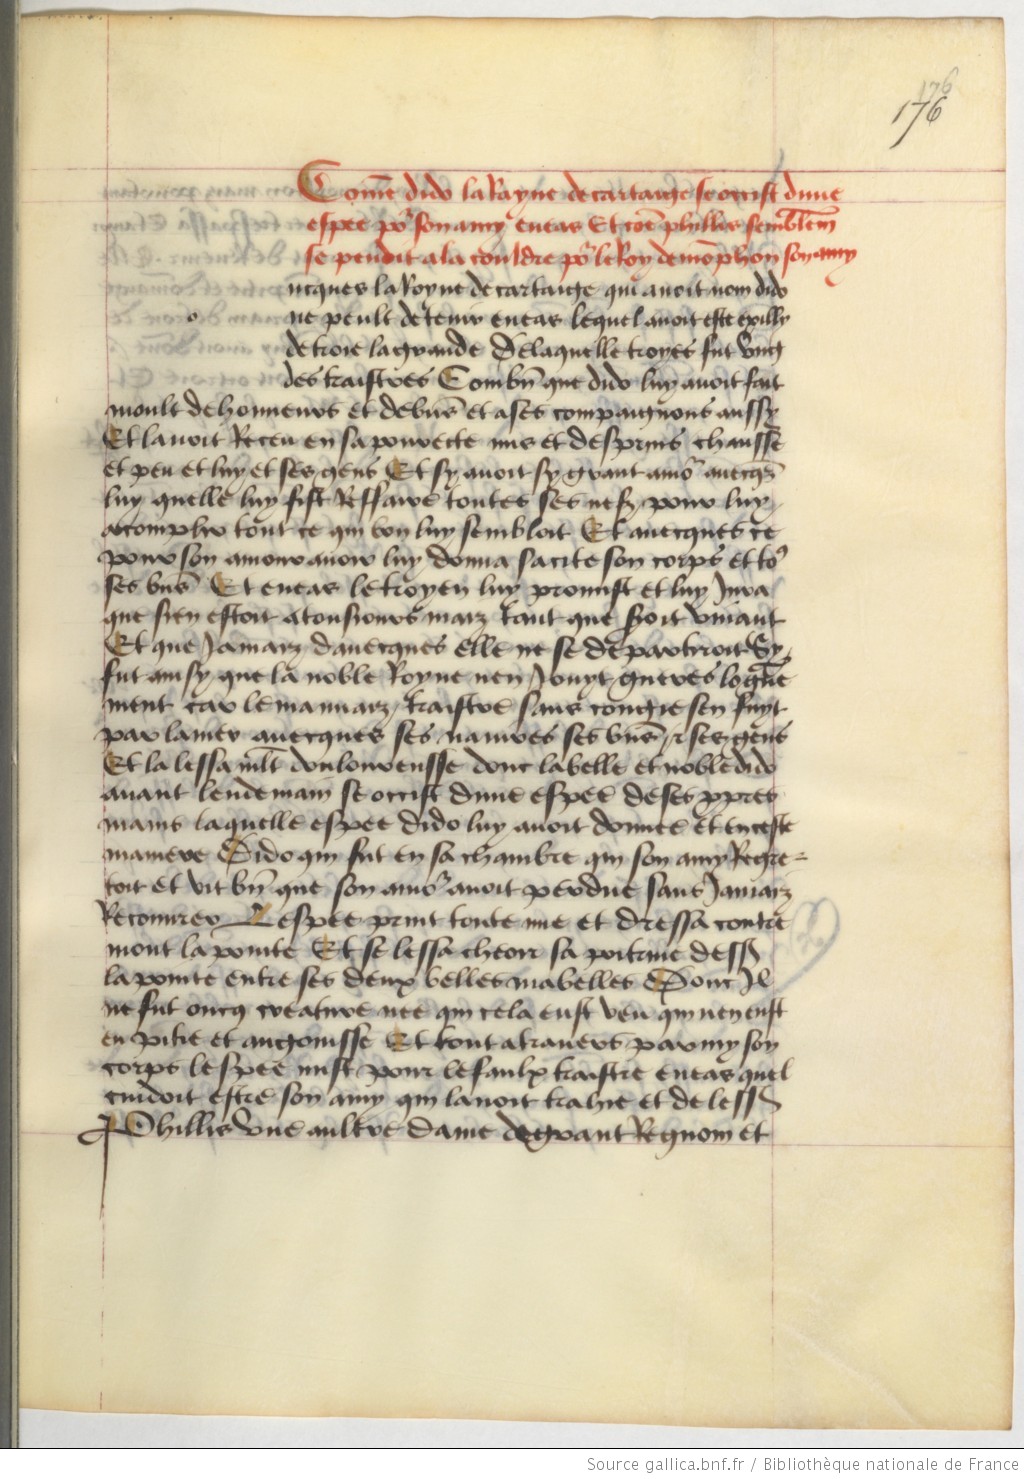 176
176
Com̄e dido la Royne de cartaige se occist dune
espee po᷑ son amy eneas Et coē phillis semblem̄
se pendit a la couldre po᷑ le Roy demophon son amy
o
ucques la Royne de cartaige qui auoit nom dido
ne peult detenir eneas lequel auoit este exilly
de troie la grande De laquelle troyes fut vng
des traistres Combn̄ que dido luy auoit fait
moult de honneurs et de bn̄s et a ses compaignons aussy
Et lauoit Receu en sa pourete nus et despris chausse
et peu et luy et ses gens Et sy auoit sy grant amo᷑ auecq̄s
luy quelle luy fist Reffaire toutes ses nefz pour luy
acomplir tout ce qui bon luy sembloit Et auecques ce
pour son amour auoir luy donna sa cite son corps et to᷑
ses bn̄s Et eneas le troyen luy promist et luy Jura
que sien estoit a tousiours maiz tant que soit viuant
Et que Jamaiz dauecques elle ne se departiroit Sy
fut ainsy que la noble Royne nen Jouyt gueres longue
ment car le mauuaiz traistre sans congie sen fuyt
par la mer auecques ses nauires ses bn̄s et ses gens
Et la lessa ml̄t doulourensse donc la belle et noble dido
auant lendemain se occist dune espee de ses ppres
mains laquelle espee dido luy auoit donnee et en ceste
maniere Dido qui fut en sa chambre qui son amy Regre-
toit et vit bn̄ que son amo᷑ auoit perdue sans Jamaiz
Recouurer Lespee print toute nue et dressa contre
mont la pointe Et se lessa cheoir sa poitrine dess᷑
la pointe entre ses deux belles mabelles Donc Jl
ne fut oncq creature nee qui cela eust veu qui nen eust
eu pitie et angouisse Et tout a trauers parmy son
corps lespee mist pour le faulx traistre eneas quel
cuidoit estre son amy qui lauoit trahie et deless᷑
Phillis vne aultre dame de grant Regnom et
Source gallica.bnf.fr / Bibliothèque nationale de France